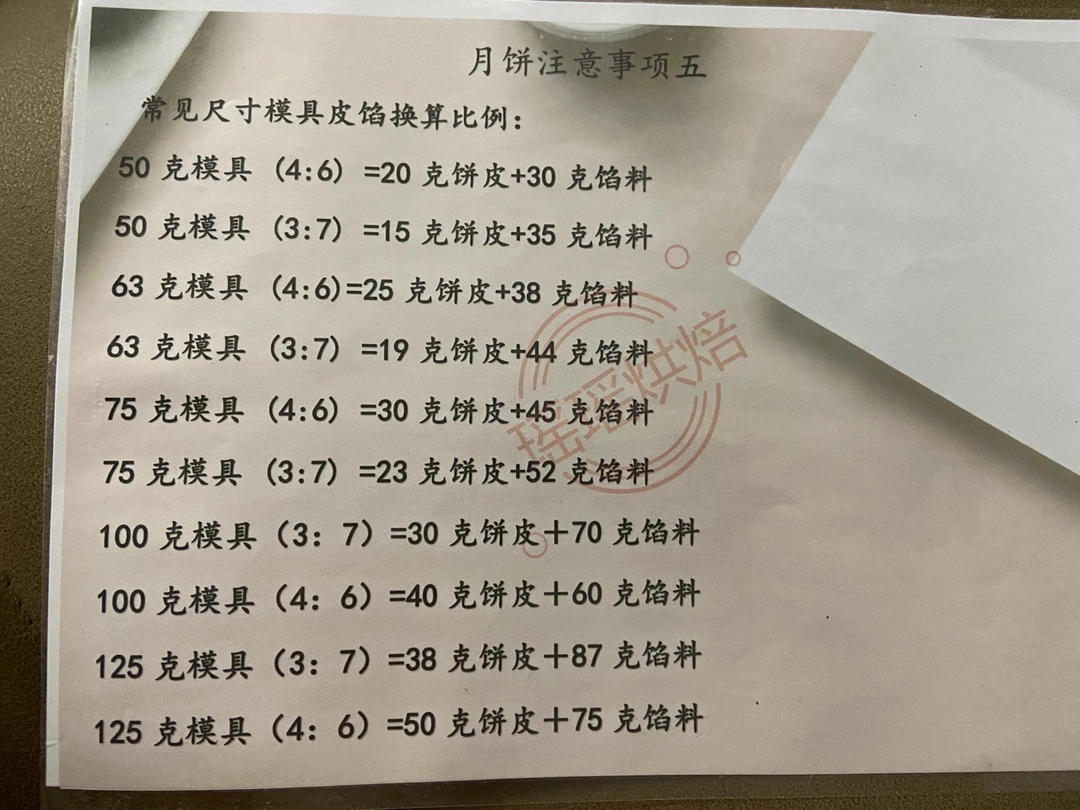 月饼注意事项五
常见尺寸模具皮馅换算比例：
50 克模具（4:6）=20 克饼皮+30 克馅料
50 克模具（3:7）=15 克饼皮+35 克馅料
63 克模具（4:6)=25 克饼皮+38 克馅料
63 克模具（3:7）=19 克饼皮+44 克馅料
75 克模具（4:6）=30 克饼皮+45 克馅料
75 克模具（3:7）=23 克饼皮+52 克馅料
100 克模具（3：7）=30 克饼皮＋70 克馅料
100 克模具（4：6）=40 克饼皮＋60 克馅料
125 克模具（3：7）=38 克饼皮＋87 克馅料
125 克模具（4：6）=50 克饼皮＋75 克馅料
瑶瑶烘焙